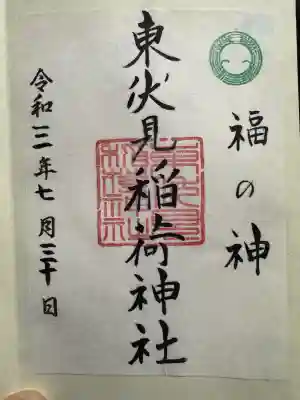 福の神
東伏見稲荷神社
令和三年七月三十日